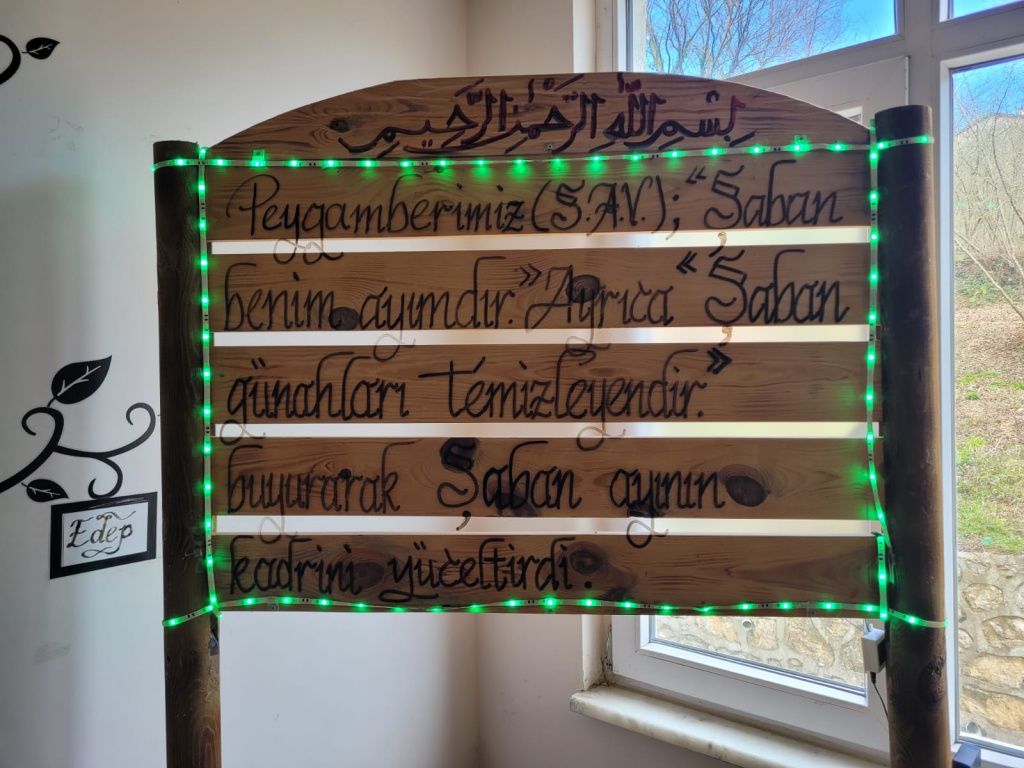 بِسْمِ اللّٰهِ الرَّحْمٰنِ الرَّحِيمِ
Peygamberimiz (S.A.V.); “Şaban
benim ayımdır.” Ayrıca “Şaban
günahları temizleyendir.”
buyurarak Şaban ayının
kadrini yüceltirdi.
Edep